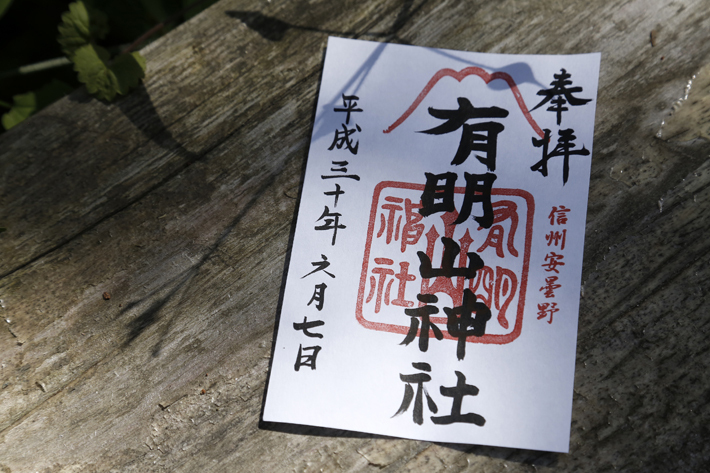 奉拝
信州安曇野
有明山神社
有明山神社
平成三十年六月七日